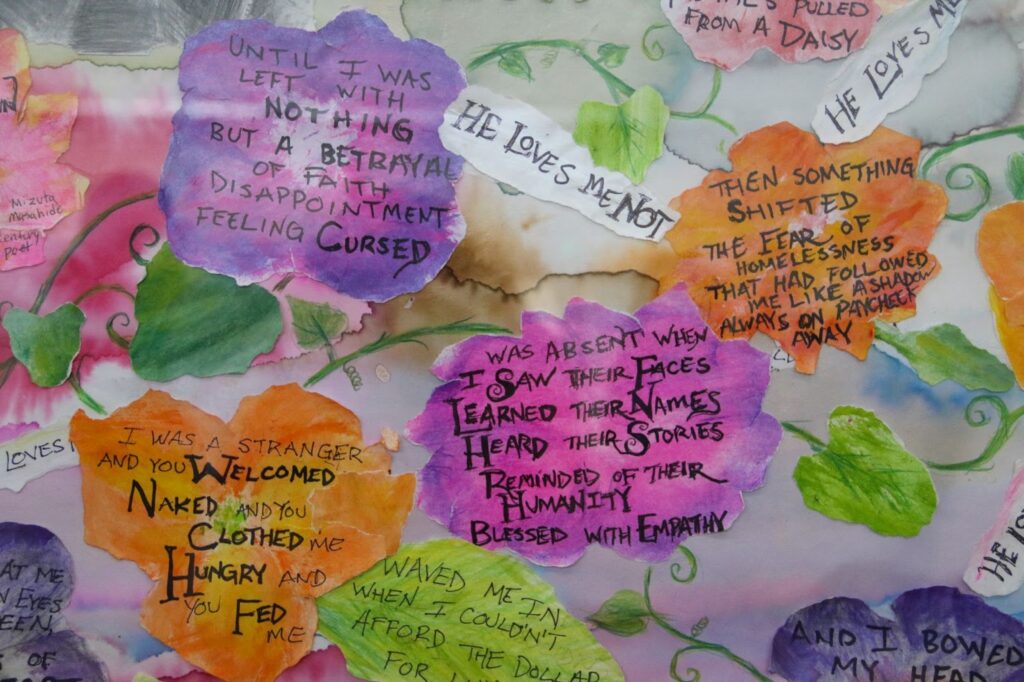 PULLED
FROM A DAISY
HE LOVES ME
UNTIL I WAS
LEFT WITH
NOTHING
BUT A BETRAYAL
OF FAITH
DISAPPOINTMENT
FEELING CURSED
HE LOVES ME NOT
THEN SOMETHING
SHIFTED
THE FEAR OF
HOMELESSNESS
THAT HAD FOLLOWED
ME LIKE A SHADOW
ALWAYS ON PAYCHECK
AWAY
Mizuta
Masahide
Century
Poet
WAS ABSENT WHEN
I SAW THEIR FACES
LEARNED THEIR NAMES
HEARD THEIR STORIES
REMINDED OF THEIR
HUMANITY
BLESSED WITH EMPATHY
LOVES
I WAS A STRANGER
AND YOU WELCOMED
NAKED AND YOU
CLOTHED ME
HUNGRY AND
YOU FED
ME
WAVED ME IN
WHEN I COULDN'T
AFFORD THE DOLLAR
FOR
AT ME
EYES
OF
HE LO
AND I BOWED
MY HEAD